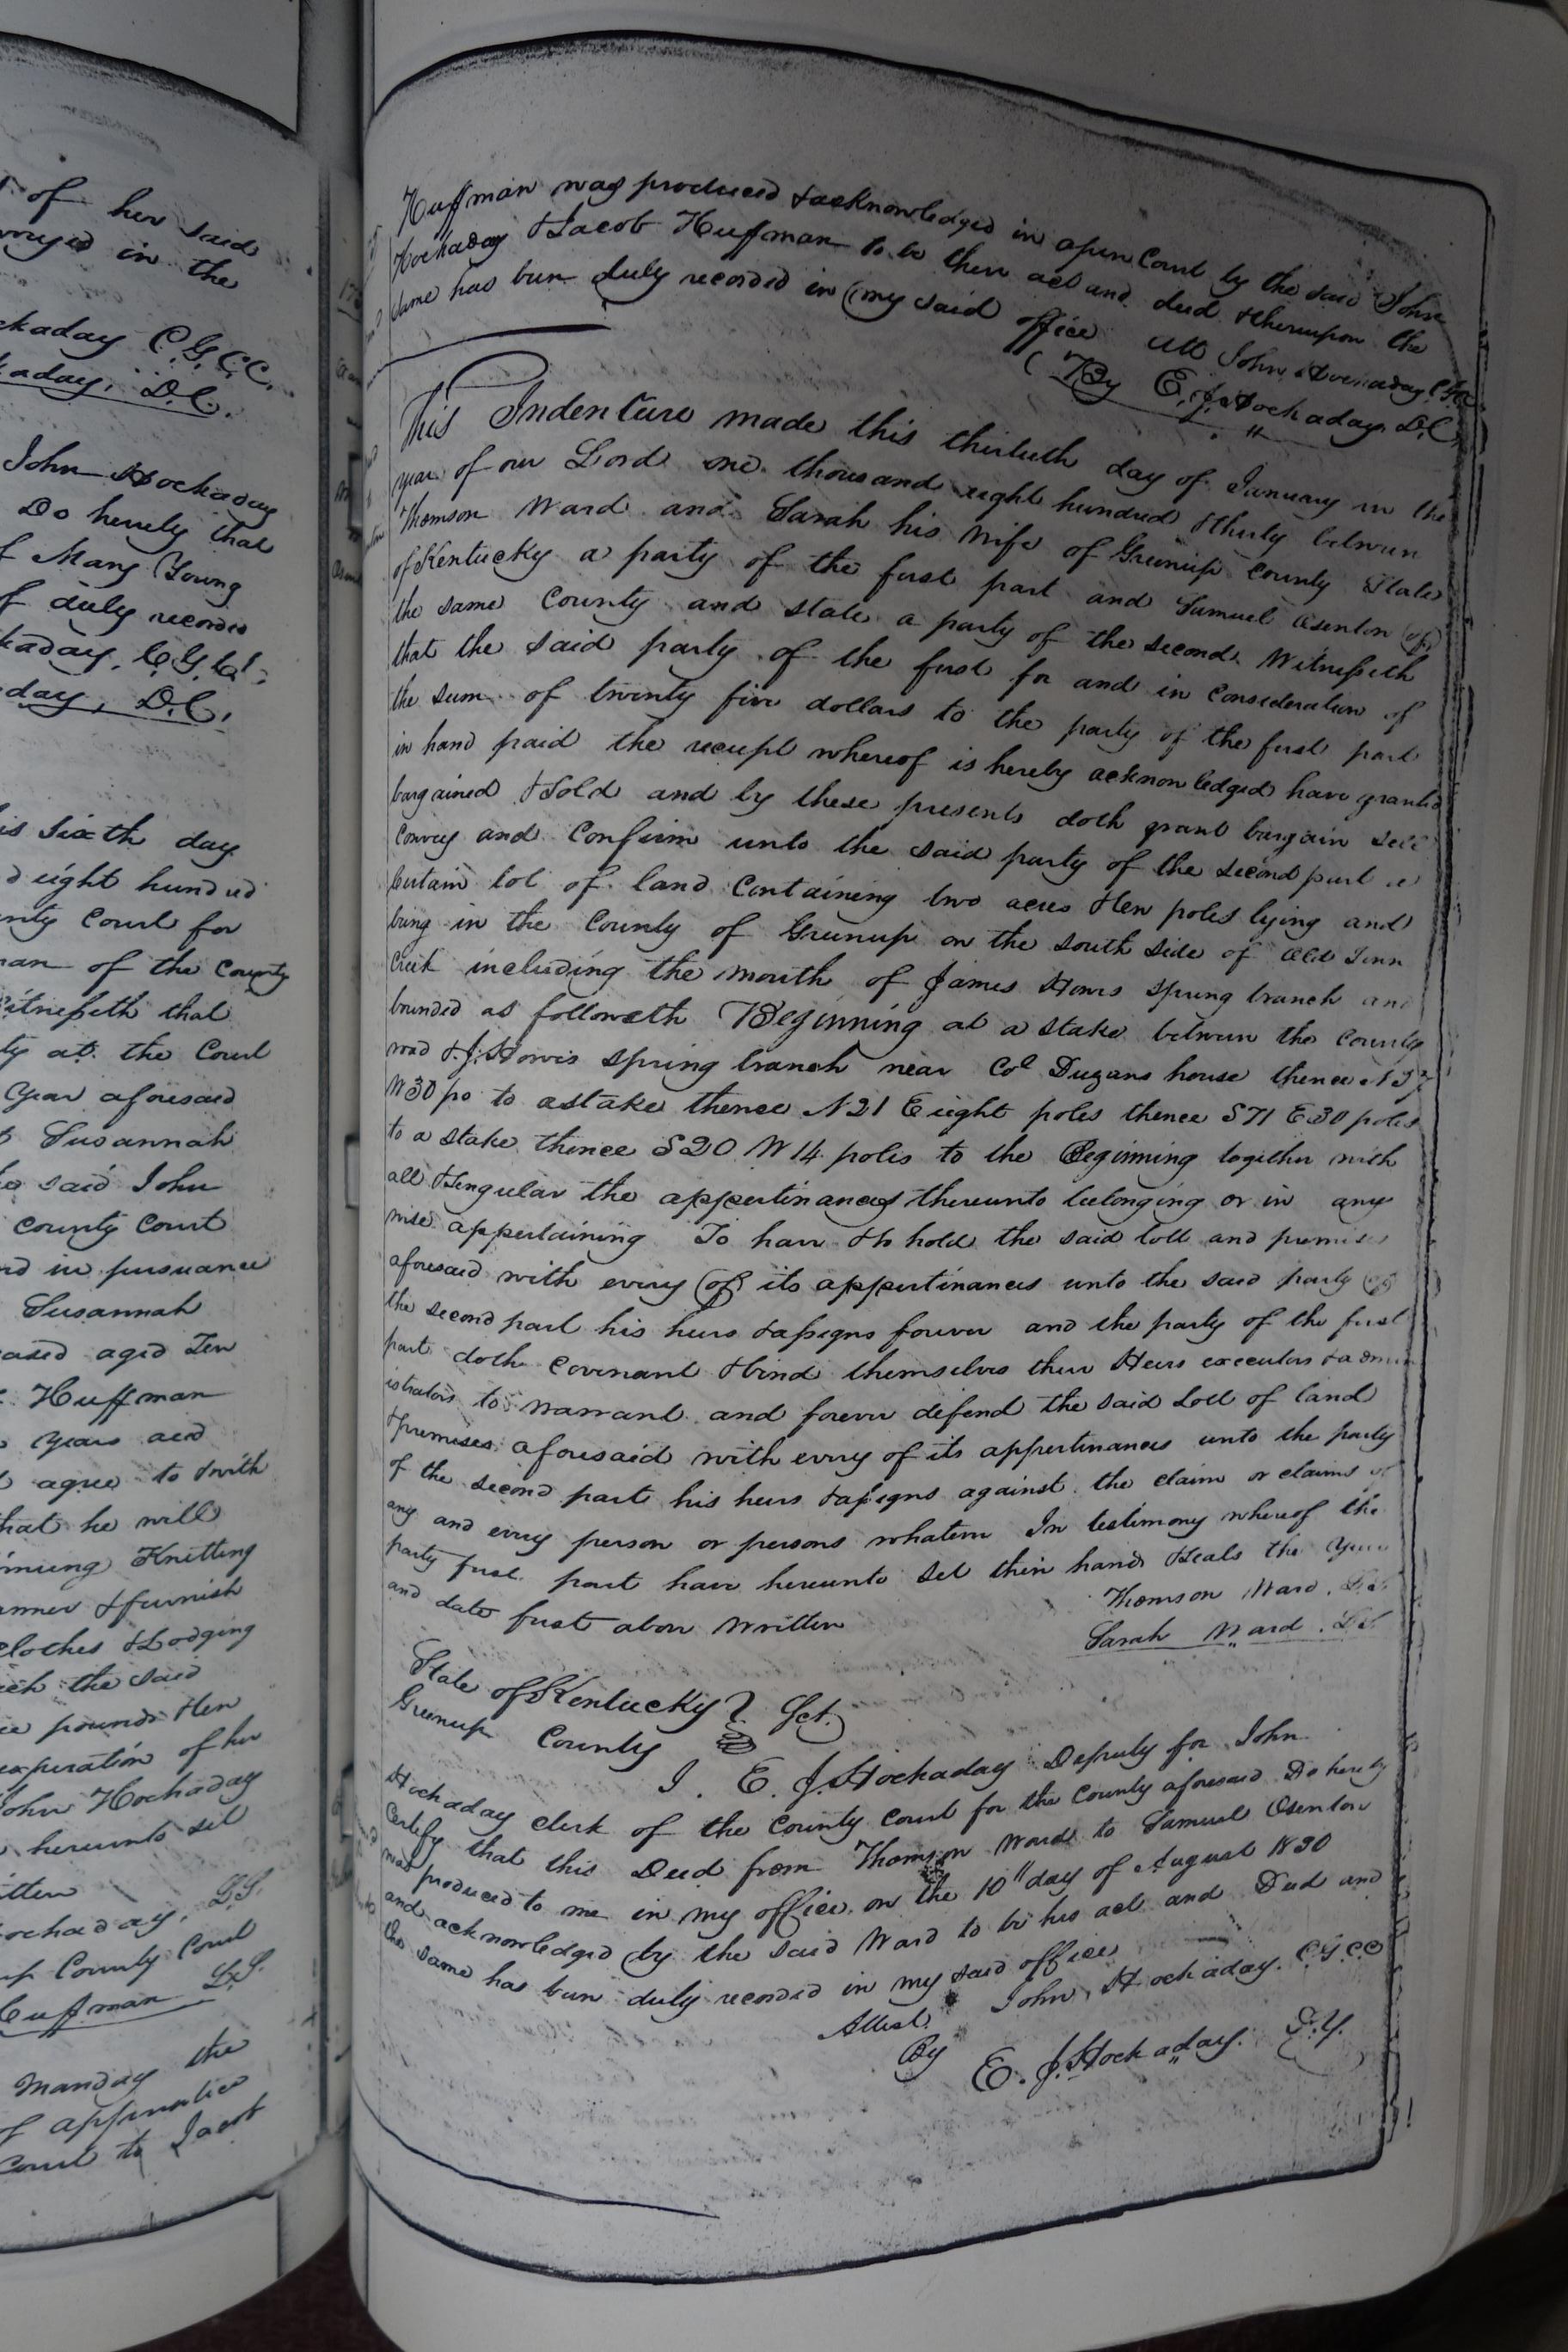 of her said
in the
ckaday C.G.C.C.
kaday, D.C.
John Hockaday
Do hereby that
f Mary Young
f duly recorded
kaday, C.G.C.
day, D.C.
is Sixth day
d eight hundred
nty Court for
man of the County
Witnesseth that
ty at the Court
Year aforesaid
Susannah
said John
County Court
nd in pursuance
Susannah
eased aged Ten
Huffman
Years and
agree to & with
that he will
Knitting
manner & furnish
clothes & Lodging
ich the said
pounds & ten
expiration of her
John Hockaday
hereunto set
itten
ockaday, L.S.
up County Court
Cuffman L.S.
Manday the
of apprentice
Court to Jacob
Huffman was produced & acknowledged in open Court by the said John
Hockaday & Jacob Huffman to be their act and deed & thereupon the
same has been duly recorded in my said office Att John Hockaday
By E. J. Hockaday D.C.
This Indenture made this thirtieth day of January in the
year of our Lord one thousand eight hundred & thirty between
Thomson Ward and Sarah his Wife of Greenup County State
of Kentucky a party of the first part and Samuel Osenton of
the same County and state a party of the second Witnesseth
that the said party of the first for and in Consideration of
the sum of twenty five dollars to the party of the first part
in hand paid the receipt whereof is hereby acknowledged have granted
bargained & Sold and by these presents doth grant bargain sell
Convey and Confirm unto the said party of the second part a
Certain lot of land Containing two acres & ten poles lying and
being in the County of Greenup on the south side of
Creek including the mouth of James Hows spring branch and
bounded as followeth Beginning at a stake between the County
road & J. Hows spring branch near Col Dugans house thence
W 30 po to a stake thence N 21 E eight poles thence S 71 E 30 poles
to a stake thence S 20 W 14 poles to the Beginning together with
all & Singular the appertinances thereunto belonging or in any
wise appertaining To have & to hold the said lott and premises
aforesaid with every of its appertinances unto the said party of
the second part his heirs & assigns forever and the party of the first
part doth Covenant & bind themselves their Heirs executors & admin
istrators to warrant and forever defend the said Lott of land
& premises aforesaid with every of its appertinances unto the party
of the second part his heirs & assigns against the claim or claims of
any and every person or persons whatever In testimony whereof the
party first part have hereunto set their hands & seals the year
and date first above written
Thomson Ward L.S.
Sarah Ward L.S.
State of Kentucky } Sct.
Greenup County
I. E. J. Hockaday Deputy for John
Hockaday clerk of the County Court for the County aforesaid Do hereby
Certify that this Deed from Thomson Ward to Samuel Osenton
was produced to me in my office on the 10" day of August 1830
and acknowledged by the said Ward to be his act and Deed and
the same has been duly recorded in my said office
Attest. John Hockaday. C.G.C.C
By E. J. Hockaday. D.Y.